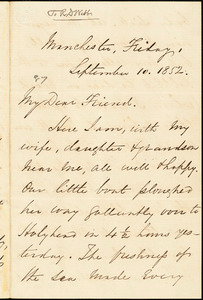 To R. D. Webb
Manchester, Friday,
September 10. 1852.
My Dear Friend.
Here I am, with my
wife, daughter & grandson
near me, all well & happy.
Our little boat ploughed
her way gallantly over to
Holyhead in 4½ hours yes-
terday. The freshness of
the sea made every